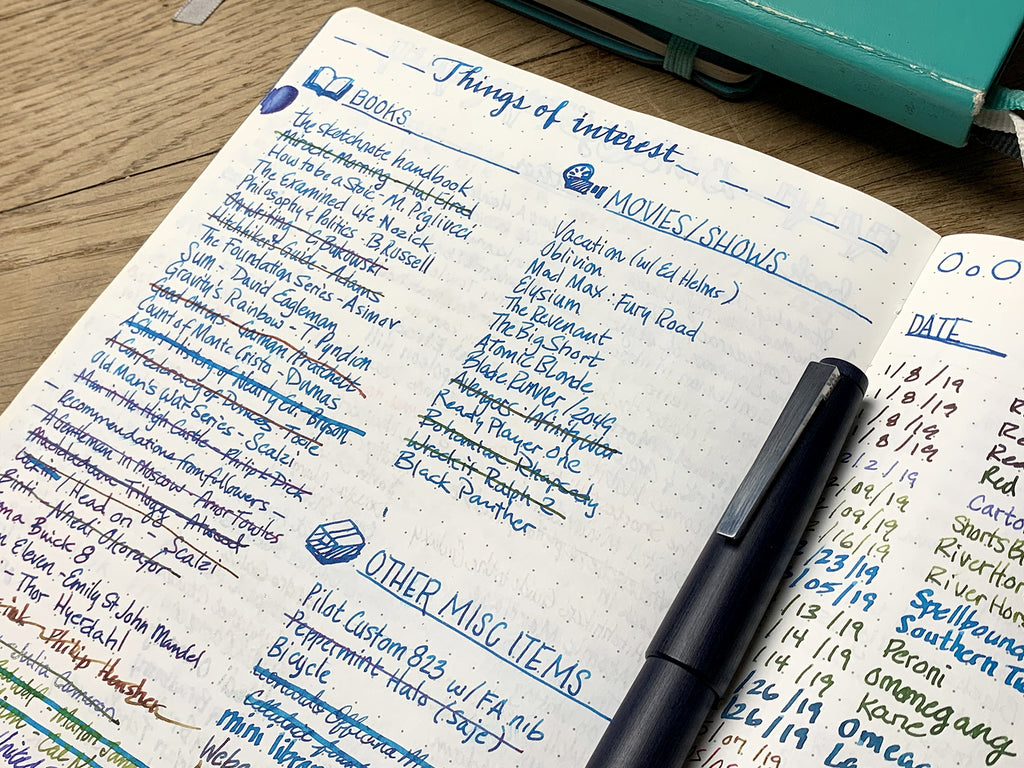 Things of interest
BOOKS
the sketchnote handbook
Miracle Morning - Hal Elrod
How to be a Stoic - M. Pigliucci
The Examined Life - Nozick
Philosophy & Politics - B. Russell
C. Bukowski
Hitchhiker's Guide - Adams
The Foundation Series - Asimov
Sum - David Eagleman
Gravity's Rainbow - Pyndion
Good Omens - Gaiman Pratchett
Count of Monte Cristo - Dumas
A Short History of Nearly
A Confederacy of Dunces - Toole
Old Man's War Series - Scalzi
Man in the High Castle - Philip K Dick
recommendations from followers -
A Gentleman in Moscow - Amor Towles
Maddaddam Trilogy - Atwood
/ Head on - Scalzi
Binti - Nnedi Okorafor
Buick 8
Eleven - Emily St. John Mandel
- Thor Hyerdahl
Philip Hensher
MOVIES/SHOWS
Vacation (w/ Ed Helms)
Oblivion
Mad Max: Fury Road
Elysium
The Revenant
The Big Short
Atomic Blonde
Blade Runner / 2049
Avengers: Infinity War
Ready Player One
Bohemian Rhapsody
Wreck it Ralph 2
Black Panther
OTHER MISC ITEMS
Pilot Custom 823 w/ FA nib
Peppermint Halo (Saje)
Bicycle
Leonardo Officina
DATE
1/8/19
1/8/19
1/8/19
2/2/19
/09/19
/09/19
/16/19
/23/19
/05/19
/13/19
/14/19
/14/19
/26/19
/26/19
Red
Shorts
River Hor
River Hor
Spellbound
Southern
Peroni
omomegang
Kane